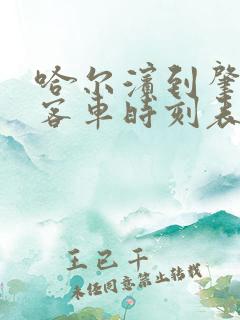 哈尔滨到肇
客车时刻表
王已千
未经同意禁止转载